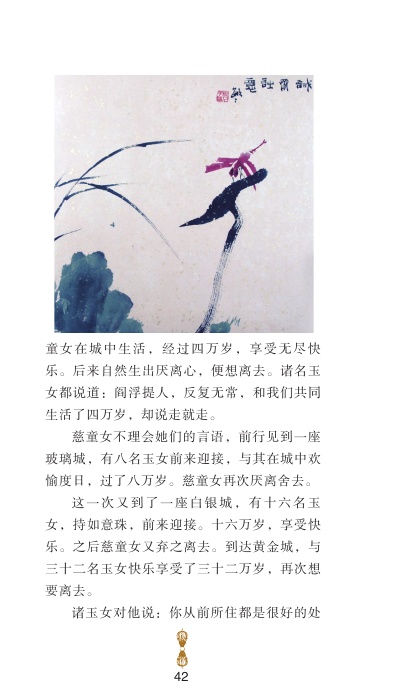 童女在城中生活，经过四万岁，享受无尽快
乐。后来自然生出厌离心，便想离去。诸名玉
女都说道：阎浮提人，反复无常，和我们共同
生活了四万岁，却说走就走。
慈童女不理会她们的言语，前行见到一座
玻璃城，有八名玉女前来迎接，与其在城中欢
愉度日，过了八万岁。慈童女再次厌离舍去。
这一次又到了一座白银城，有十六名玉
女，持如意珠，前来迎接。十六万岁，享受快
乐。之后慈童女又弃之离去。到达黄金城，与
三十二名玉女快乐享受了三十二万岁，再次想
要离去。
诸玉女对他说：你从前所住都是很好的处
42